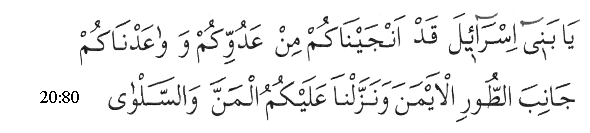 يَا بَنِىٓ اِسْرَآئٖيلَ قَدْ اَنْجَيْنَاكُمْ مِنْ عَدُوِّكُمْ وَ وٰعَدْنَاكُمْ
جَانِبَ الطُّورِ الْاَيْمَنَ وَنَزَّلْنَا عَلَيْكُمُ الْمَنَّ وَالسَّلْوٰى 20:80